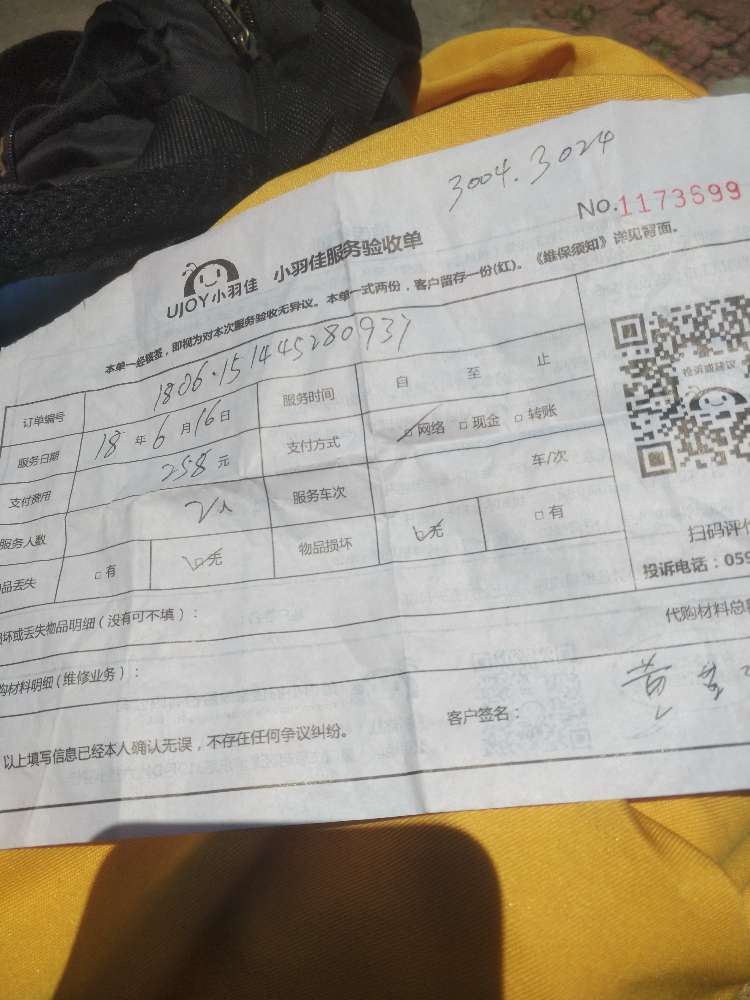 3004.3024
NO.1173699
UJOY小羽佳 小羽佳服务验收单
本单一经签签，即视为对本次服务验收无异议。本单一式两份，客户留存一份(红)。《维保须知》详见背面。
订单编号 1806.15144528093
服务日期 18年6月16日 服务时间 自 至 止
支付费用 258元 支付方式 网络 现金 转账
服务人数 2人 服务车次 车/次
品丢失 有 无 物品损坏 无 有
投诉或建议
扫码评
投诉电话：059
坏或丢失物品明细（没有可不填）：
代购材料总
购材料明细（维修业务）：
以上填写信息已经本人确认无误，不存在任何争议纠纷。 客户签名： 黄